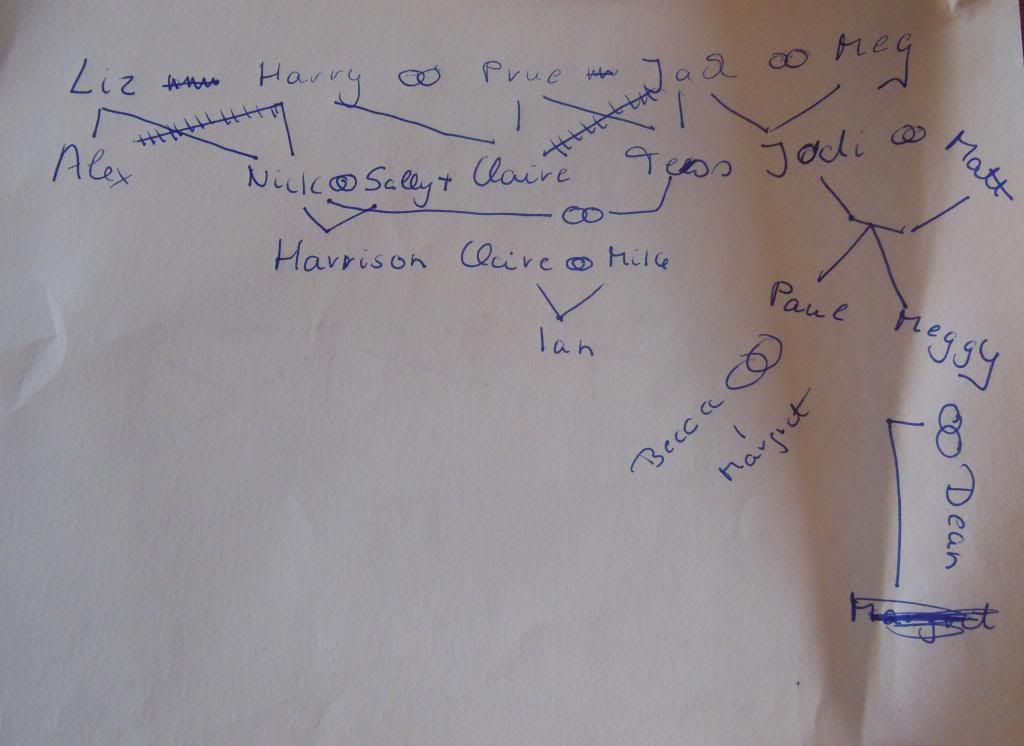 Liz Harry Prue Jack Meg
Alex Nick Sally + Claire Tess Jodi Matt
Harrison Claire Mike
Ian
Paul Meggy
Becca Margret
Dean